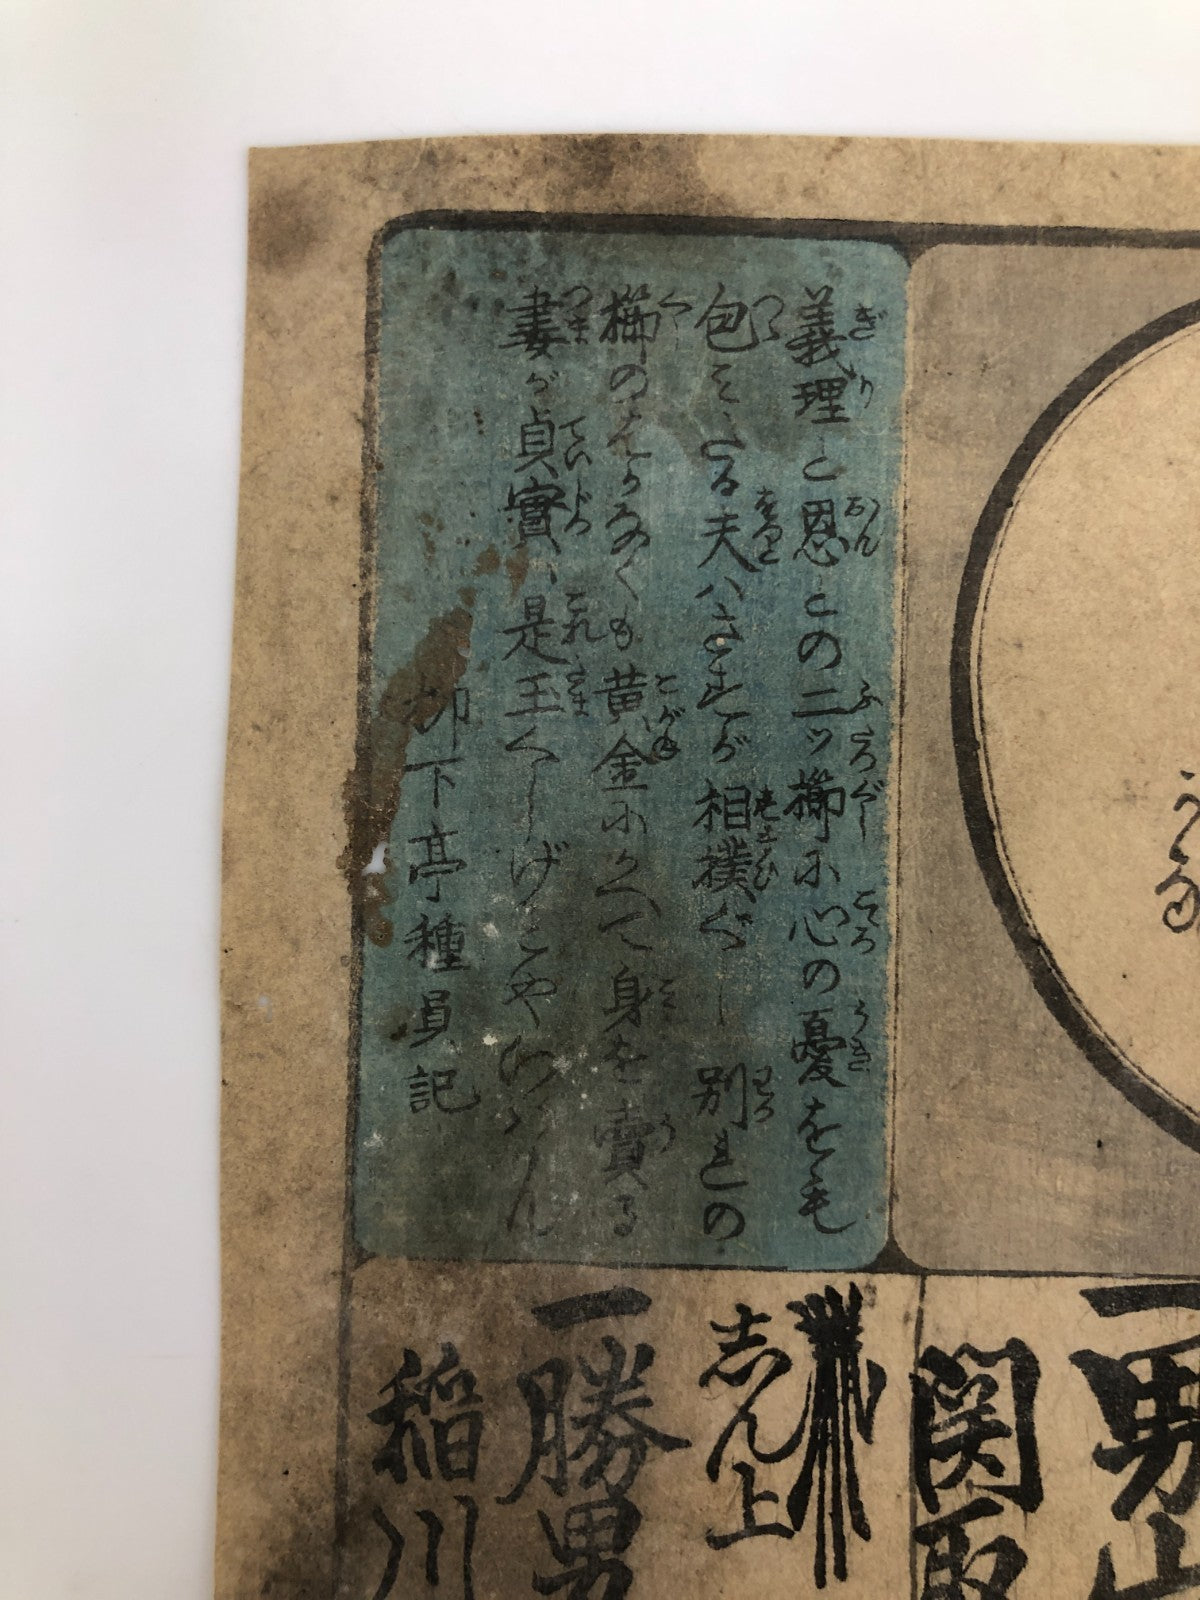 義理と恩との二ッ櫛に心の憂を毛
包みたる夫ハさすが相撲ぐし別れの
櫛のはかなくも黄金にかへて身を賣る
妻が貞實、是玉くしげとやいはん
柳下亭種員記
志ん上
一勝男
稲川
関取
一男山